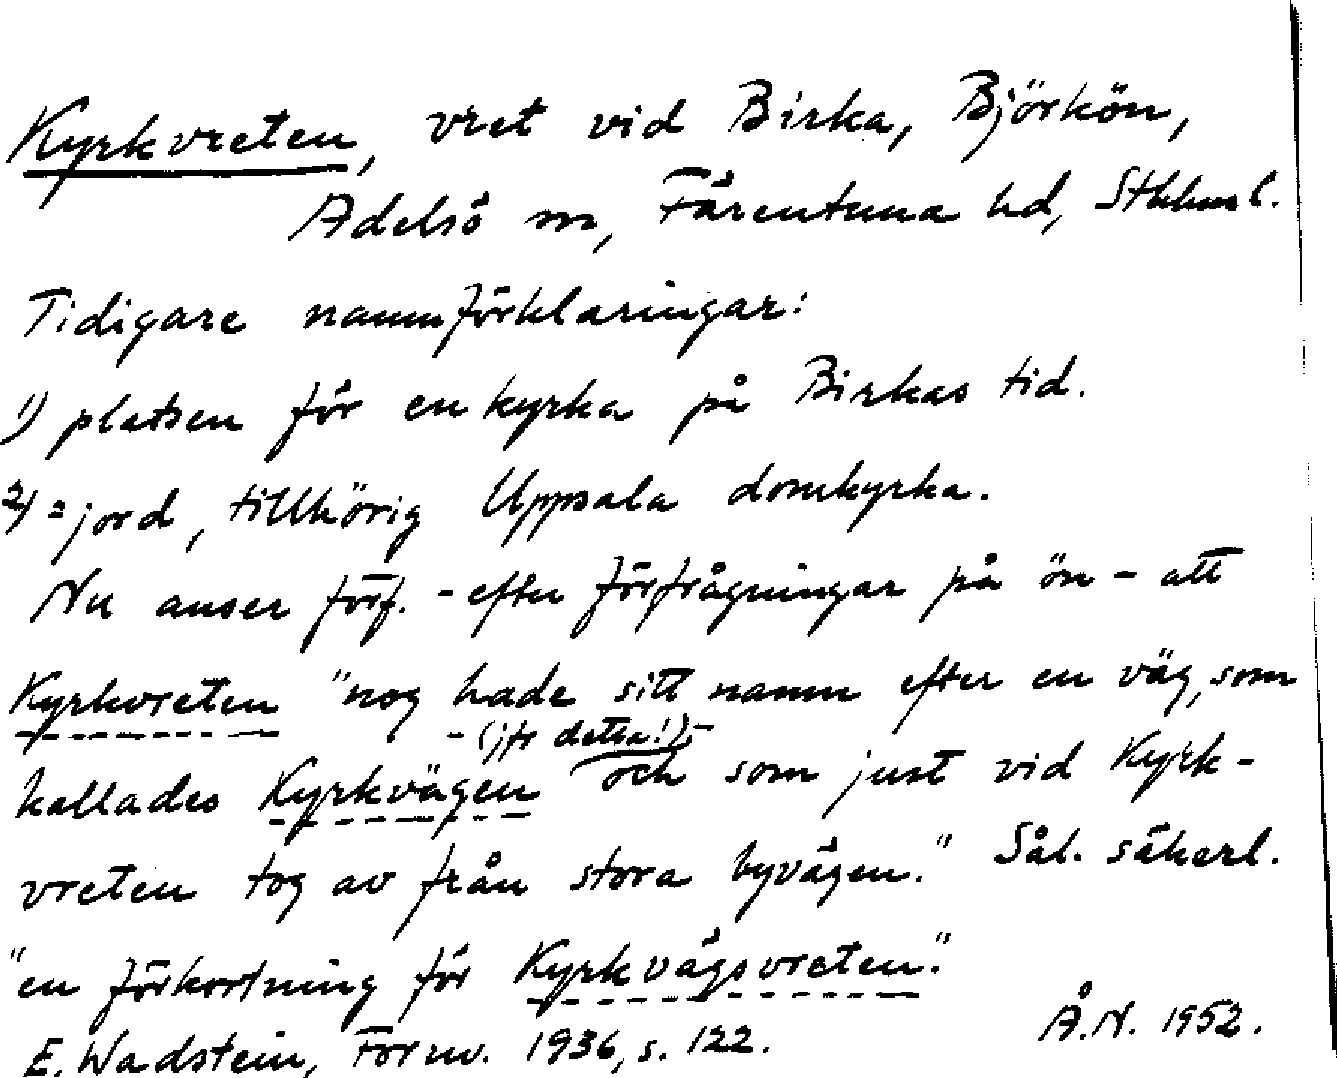 Kyrkvreten, vret vid Birka, Björkön,
Adelsö sn, Färentuna hd, Sthlms l.
Tidigare namnförklaringar:
1) platsen för en kyrka på Birkas tid.
2) = jord, tillhörig Uppsala domkyrka.
Nu anser förf. - efter förfrågningar på ön - att
Kyrkvreten "nog hade sitt namn efter en väg, som
- (jfr detta!) -
kallades Kyrkvägen och som just vid Kyrk-
vreten tog av från stora byvägen." Sål. säkerl.
"en förkortning för Kyrkvägsvreten."
E. Wadstein, Fornv. 1936, s. 122.
Å.N. 1952.